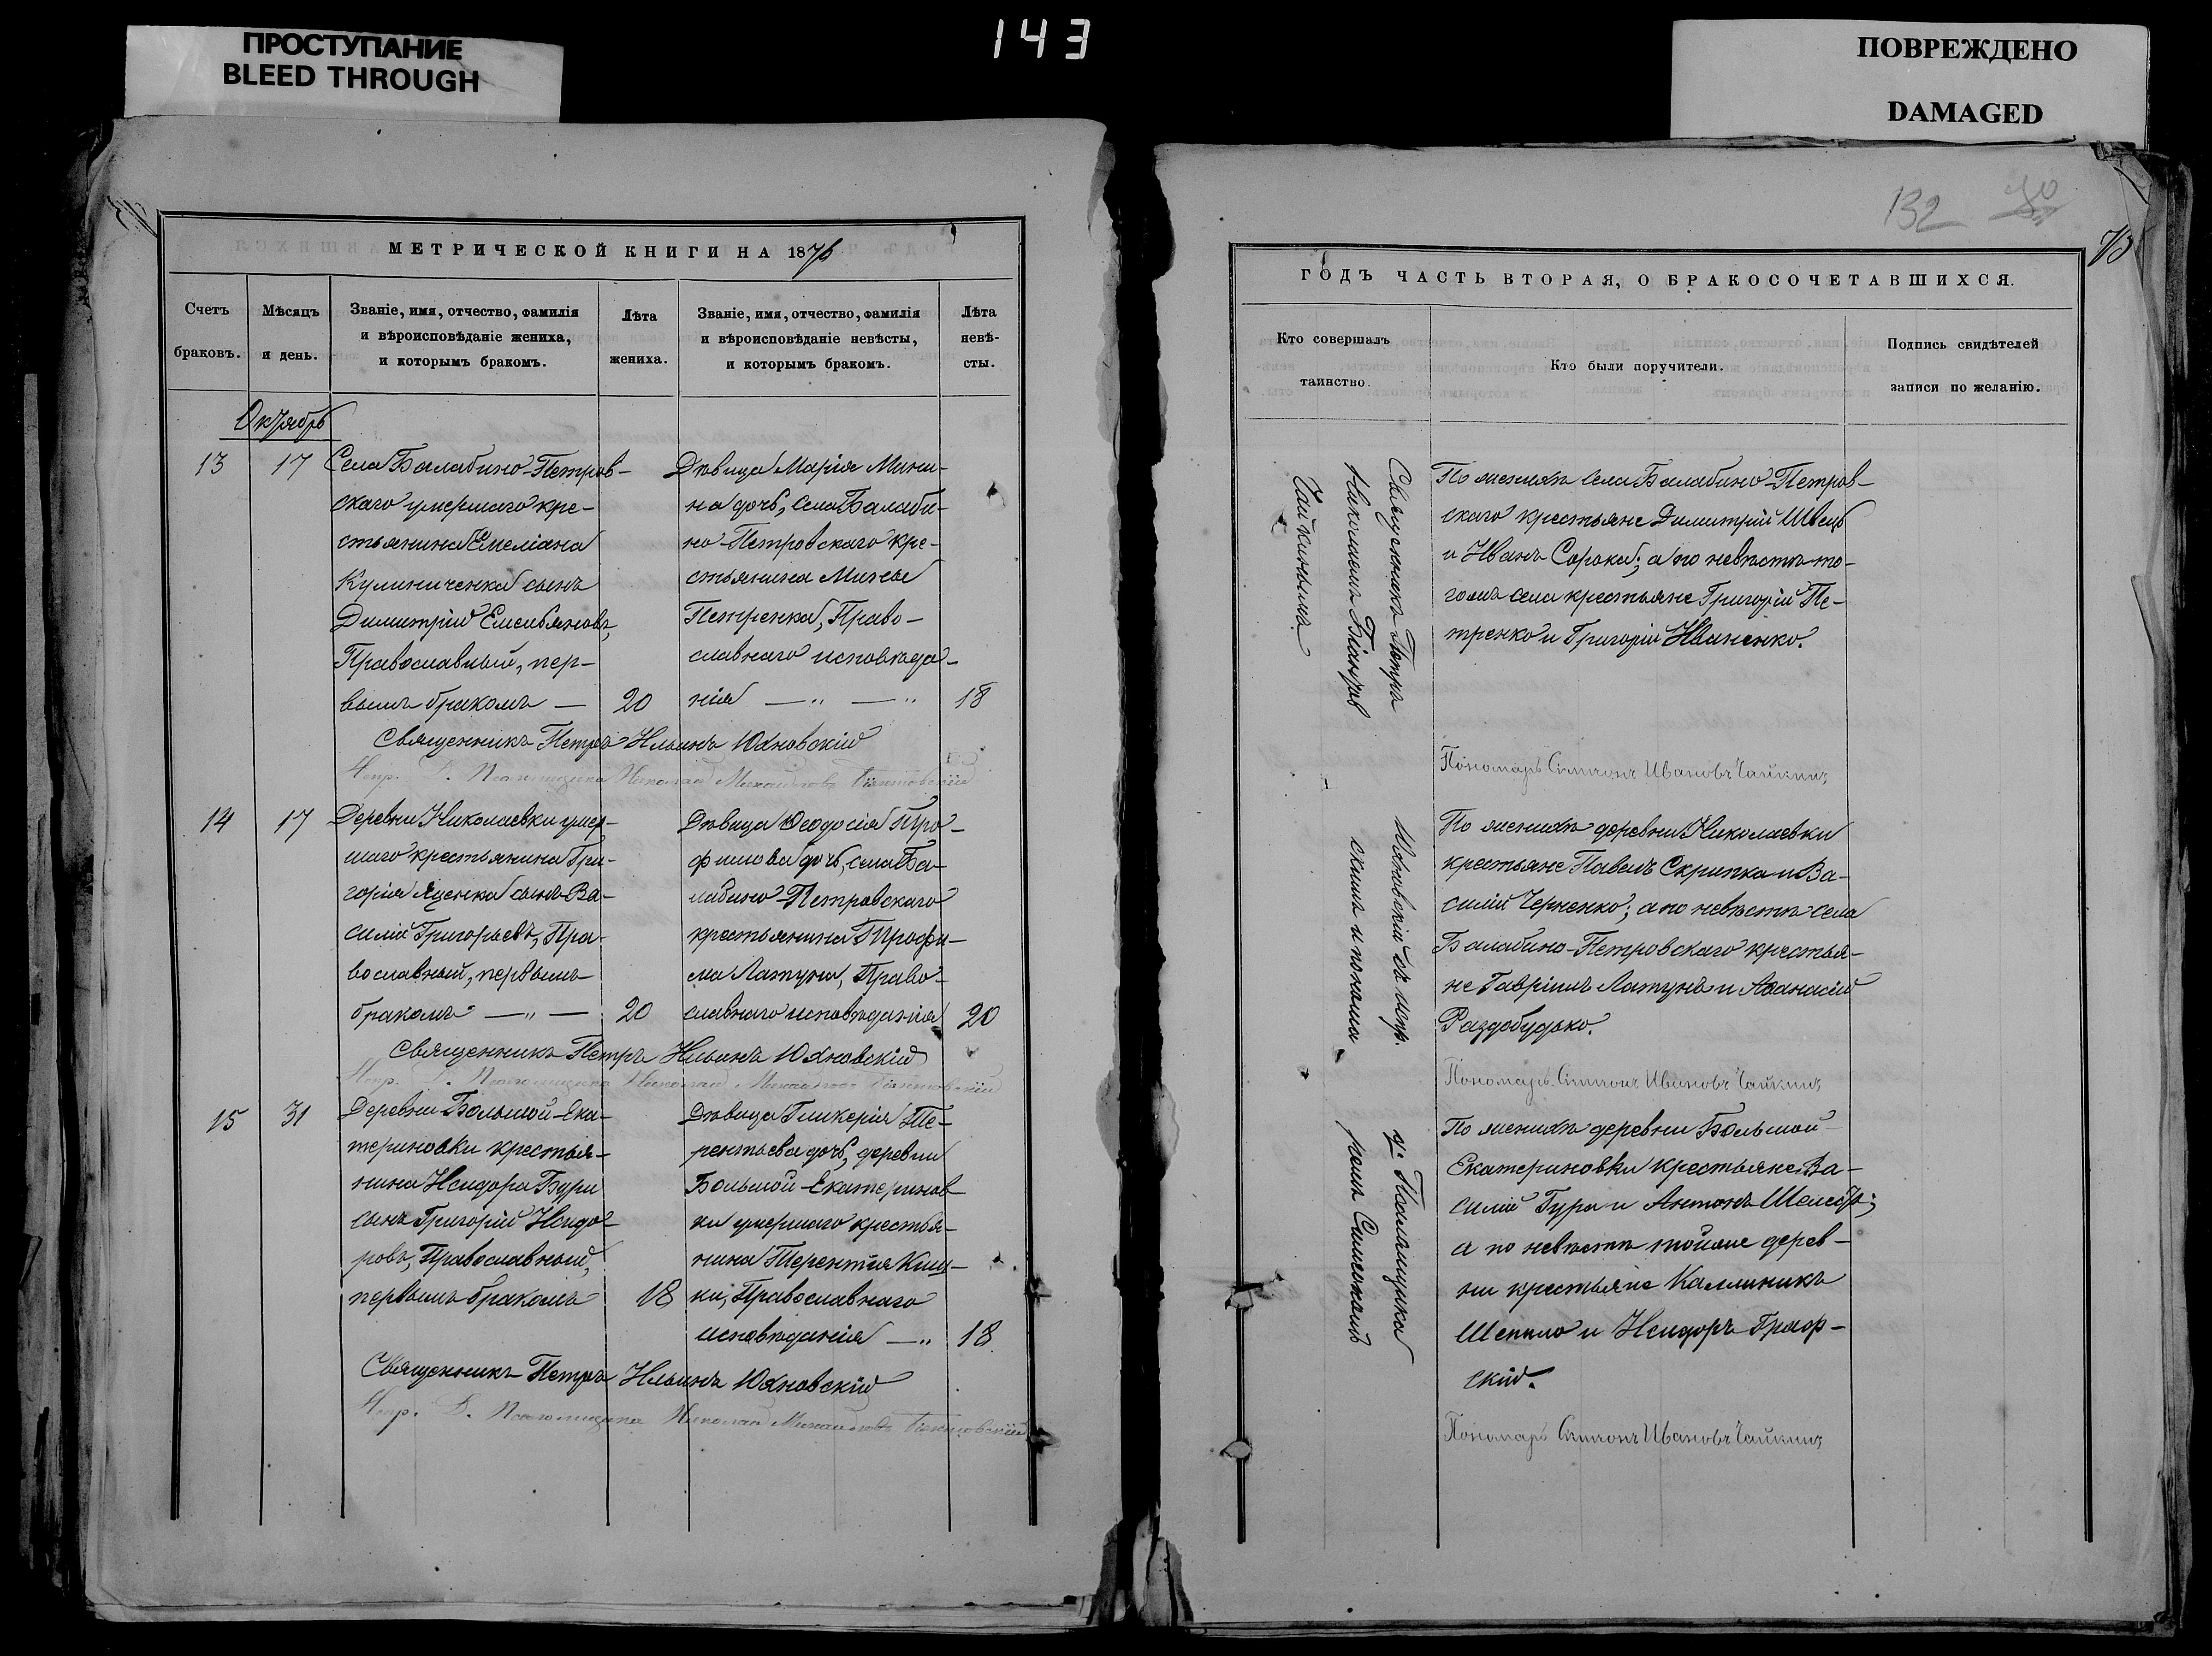 ПРОСТУПАНИЕ
BLEED THROUGH
143
ПОВРЕЖДЕНО
DAMAGED
МЕТРИЧЕСКОЙ КНИГИ НА 1876
Счетъ
браковъ.
Мѣсяцъ
и день.
Званіе, имя, отчество, фамилія
и вѣроисповѣданіе жениха,
и которымъ бракомъ.
Лѣта
жениха.
Званіе, имя, отчество, фамилія
и вѣроисповѣданіе невѣсты,
и которымъ бракомъ.
Лѣта
невѣ-
сты.
Октябрь
13
17
Села Балабино-Петров-
скаго умершаго кре-
стьянина Емеліана
Кулиниченка сынъ
Димитрій Емельяновъ,
Православный, пер-
вымъ бракомъ —
20
Дѣвица Марія Мини-
на дочь, села Балаби-
но-Петровскаго кре-
стьянина Мины
Петренка, Право-
славнаго исповѣда-
нія — „ — „
18
Священникъ Петръ Ильинъ Юхновскій
Испр. д. Псаломщика Николай Михайловъ
14
17
Деревни Николаевки умер-
шаго крестьянина Гри-
горія Яценка сынъ Ва-
силій Григорьевъ, Пра-
вославный, первымъ
бракомъ — „ —
20
Дѣвица Ѳеодосія Тро-
фимова дочь, села Ба-
лабино-Петровскаго
крестьянина Трофи-
ма Латуна, Право-
славнаго исповѣданія
20
Священникъ Петръ Ильинъ Юхновскій
Испр. д. Псаломщика Николай Михайловъ
15
31
Деревни Большой-Ека-
териновки крестья-
нина Исидора Бури
сынъ Григорій Исидо-
ровъ, Православный,
первымъ бракомъ
18
Дѣвица Гликерія Те-
рентьева дочь, деревни
Большой-Екатеринов-
ки умершаго крестья-
нина Терентія Киш-
ки, Православнаго
исповѣданія — „
18
Священникъ Петръ Ильинъ Юхновскій
Испр. д. Псаломщика Николай Михайловъ
132
ГОДЪ ЧАСТЬ ВТОРАЯ, О БРАКОСОЧЕТАВШИХСЯ.
Кто совершалъ
таинство.
Кто были поручители.
Подпись свидѣтелей
записи по желанію.
Священникъ Петръ Юхновскій съ испр. д. Псаломщика
Николаемъ скимъ и понома- ремъ Симеономъ
Чайкинымъ
По женихѣ села Балабино-Петров-
скаго крестьяне Димитрій Швецъ
и Иванъ Сорока; а по невѣстѣ то-
гожъ села крестьяне Григорій Пе-
тренко и Григорій Иваненко.
Пономарь Симеонъ Ивановъ Чайкинъ
По женихѣ деревни Николаевки
крестьяне Павелъ Скрипка и Ва-
силій Черненко; а по невѣстѣ села
Балабино-Петровскаго крестья-
не Гавріилъ Латунъ и Аѳанасій
Раздобудько.
Пономарь Симеонъ Ивановъ Чайкинъ
По женихѣ деревни Большой-
Екатериновки крестьяне Ва-
силій Гура и Антонъ
а по невѣстѣ тойже дерев-
ни крестьяне Каллиникъ
Шепило и Исидоръ Граф-
скій.
Пономарь Симеонъ Ивановъ Чайкинъ